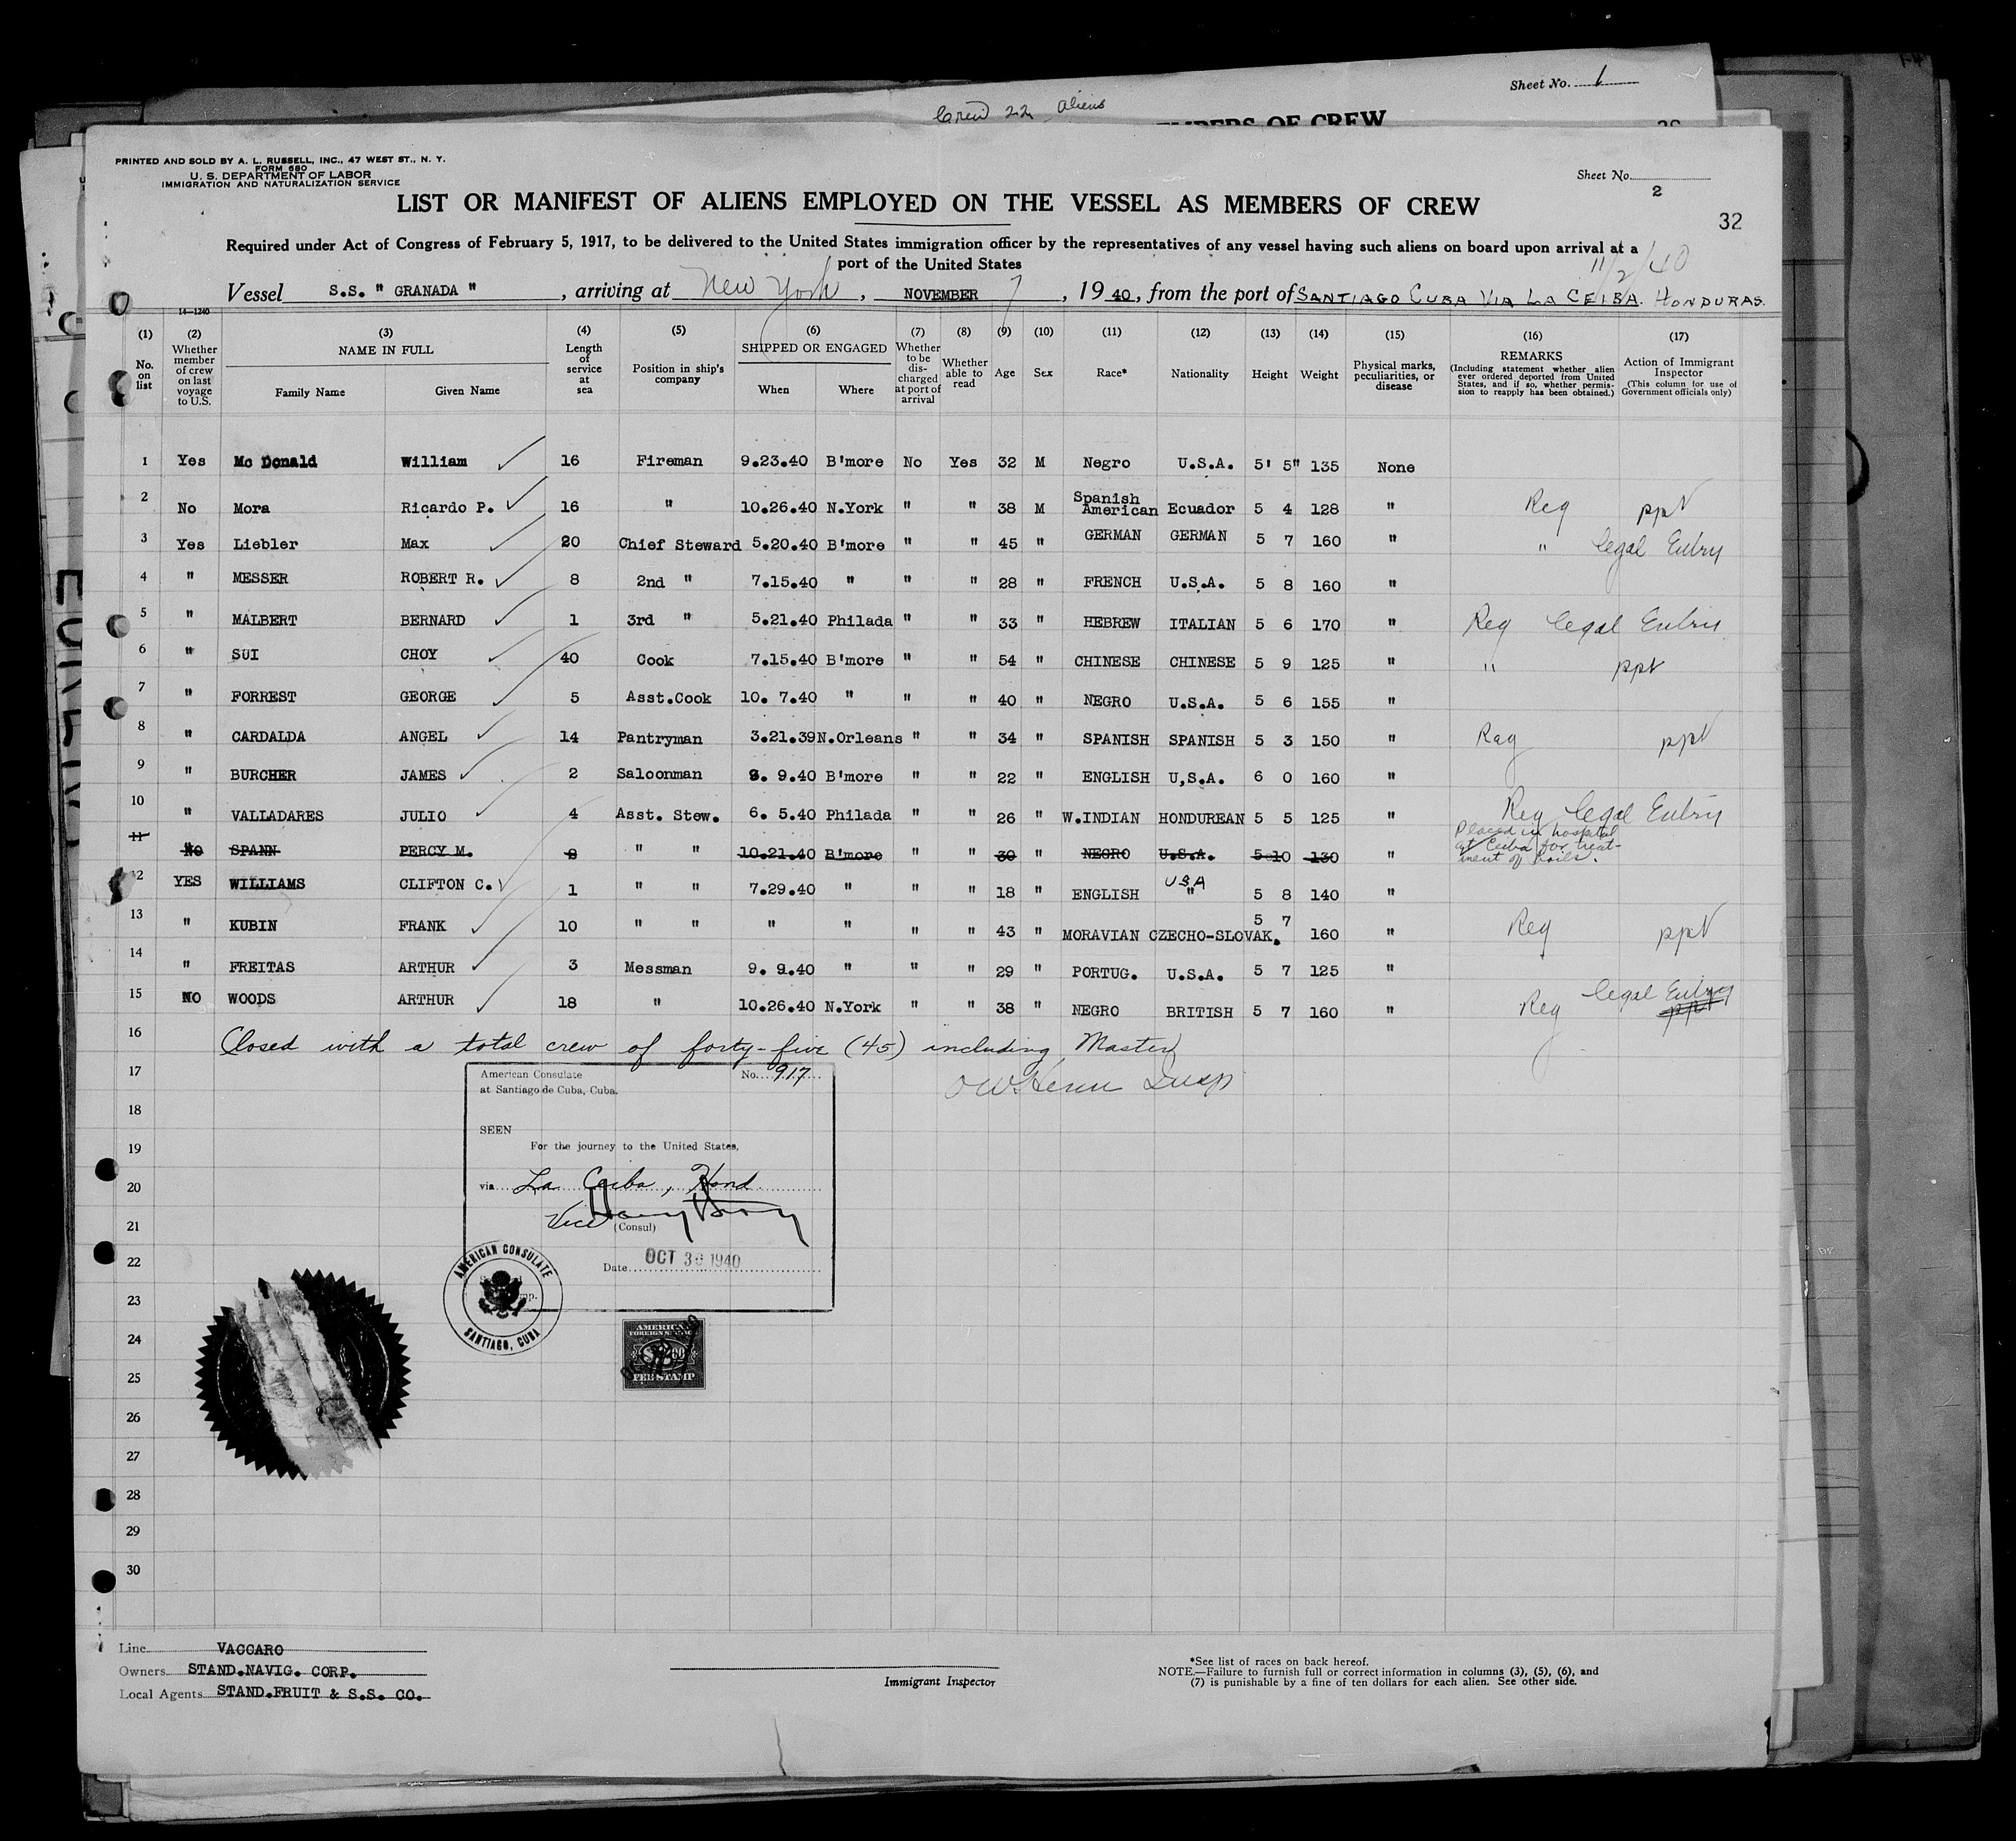 Sheet No. 1
Crew 22 Aliens
MEMBERS OF CREW
PRINTED AND SOLD BY A. L. RUSSELL, INC., 47 WEST ST., N. Y.
FORM 680
U. S. DEPARTMENT OF LABOR
IMMIGRATION AND NATURALIZATION SERVICE
Sheet No. 2
32
LIST OR MANIFEST OF ALIENS EMPLOYED ON THE VESSEL AS MEMBERS OF CREW
Required under Act of Congress of February 5, 1917, to be delivered to the United States immigration officer by the representatives of any vessel having such aliens on board upon arrival at a
port of the United States
11/2/40
Vessel S.S. " GRANADA ", arriving at New York, NOVEMBER 7, 1940, from the port of SANTIAGO CUBA VIA LA CEIBA. HONDURAS.
14-1240
(1) (2) (3) (4) (5) (6) (7) (8) (9) (10) (11) (12) (13) (14) (15) (16) (17)
No. on list
Whether member of crew on last voyage to U.S.
NAME IN FULL
Family Name Given Name
Length of service at sea
Position in ship's company
SHIPPED OR ENGAGED
When Where
Whether to be discharged at port of arrival
Whether able to read
Age Sex Race* Nationality Height Weight
Physical marks, peculiarities, or disease
REMARKS
(Including statement whether alien ever ordered deported from United States, and if so, whether permission to reapply has been obtained.)
Action of Immigrant Inspector
(This column for use of Government officials only)
1 Yes Mc Donald William 16 Fireman 9.23.40 B'more No Yes 32 M Negro U.S.A. 5' 5" 135 None
2 No Mora Ricardo P. 16 " 10.26.40 N.York " " 38 M Spanish American Ecuador 5 4 128 " Reg ppt
3 Yes Liebler Max 20 Chief Steward 5.20.40 B'more " " 45 " GERMAN GERMAN 5 7 160 " " legal Entry
4 " MESSER ROBERT R. 8 2nd " 7.15.40 " " " 28 " FRENCH U.S.A. 5 8 160 "
5 " MALBERT BERNARD 1 3rd " 5.21.40 Philada " " 33 " HEBREW ITALIAN 5 6 170 " Reg legal Entry
6 " SUI CHOY 40 Cook 7.15.40 B'more " " 54 " CHINESE CHINESE 5 9 125 " " ppt
7 " FORREST GEORGE 5 Asst.Cook 10. 7.40 " " " 40 " NEGRO U.S.A. 5 6 155 "
8 " CARDALDA ANGEL 14 Pantryman 3.21.39 N.Orleans " " 34 " SPANISH SPANISH 5 3 150 " Reg ppt
9 " BURCHER JAMES 2 Saloonman 9.40 B'more " " 22 " ENGLISH U,S.A. 6 0 160 "
10 " VALLADARES JULIO 4 Asst. Stew. 6. 5.40 Philada " " 26 " W.INDIAN HONDUREAN 5 5 125 " Reg legal Entry
11 No SPANN PERCY M. 8 " " 10.21.40 B'more " " 30 " NEGRO U.S.A. 5 10 130 " Placed in hospital at Ceiba for treatment of boils.
12 YES WILLIAMS CLIFTON C. 1 " " 7.29.40 " " " 18 " ENGLISH USA " 5 8 140 "
13 " KUBIN FRANK 10 " " " " " " 43 " MORAVIAN CZECHO-SLOVAK. 5 7 160 " Reg ppt
14 " FREITAS ARTHUR 3 Messman 9. 9.40 " " " 29 " PORTUG. U.S.A. 5 7 125 "
15 NO WOODS ARTHUR 18 " 10.26.40 N.York " " 38 " NEGRO BRITISH 5 7 160 " Reg legal Entry ppt
16 Closed with a total crew of forty-five (45) including Master
17
18
19
20
21
22
23
24
25
26
27
28
29
30
Insp
American Consulate No. 917
at Santiago de Cuba, Cuba.
SEEN
For the journey to the United States,
via La Ceiba, Hond
Vice
(Consul)
Date OCT 30 1940
AMERICAN CONSULATE
SANTIAGO, CUBA
AMERICAN
FOREIGN SERVICE
FEE STAMP
Line VACCARO
Owners STAND.NAVIG. CORP.
Local Agents STAND.FRUIT & S.S. CO.
Immigrant Inspector
*See list of races on back hereof.
NOTE.—Failure to furnish full or correct information in columns (3), (5), (6), and
(7) is punishable by a fine of ten dollars for each alien. See other side.